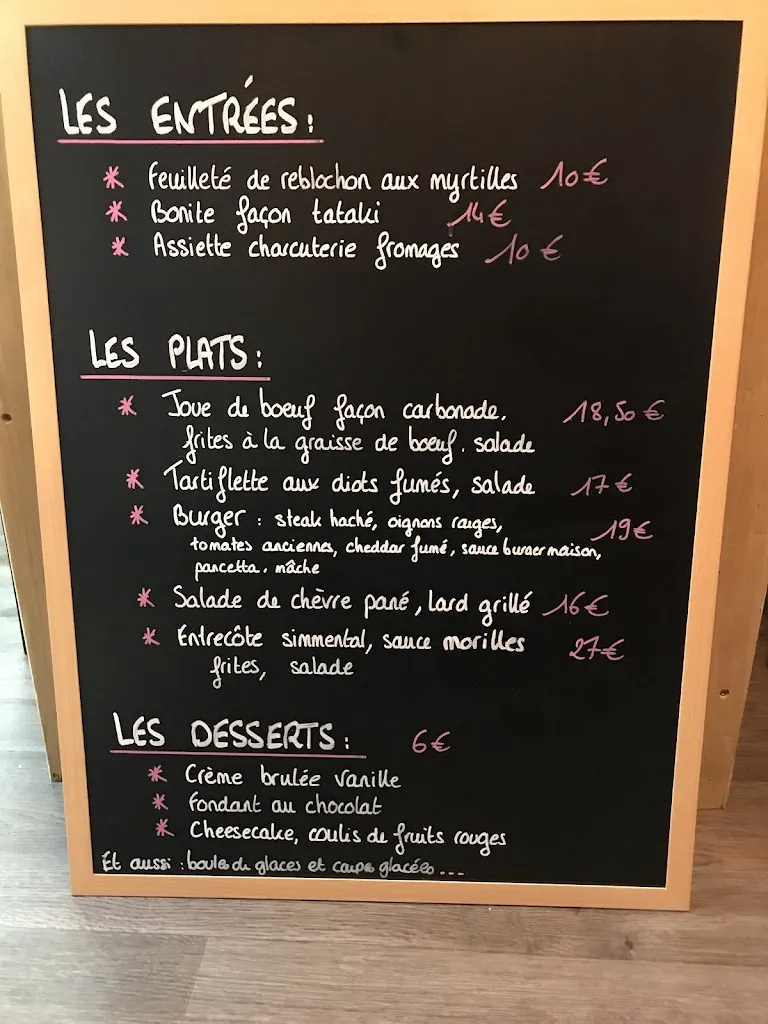 LES ENTRÉES :
* Feuilleté de reblochon aux myrtilles 10€
* Bonite façon tataki 14€
* Assiette charcuterie fromages 10€
LES PLATS :
* Joue de boeuf façon carbonade, 18,50€
frites à la graisse de boeuf, salade
* Tartiflette aux diots fumés, salade 17€
* Burger : steak haché, oignons rouges, 19€
tomates anciennes, cheddar fumé, sauce burger maison,
pancetta, mâche
* Salade de chèvre pané, lard grillé 16€
* Entrecôte simmental, sauce morilles 27€
frites, salade
LES DESSERTS : 6€
* Crème brulée vanille
* Fondant au chocolat
* Cheesecake, coulis de fruits rouges
Et aussi : boule de glaces et coupe glacées ...